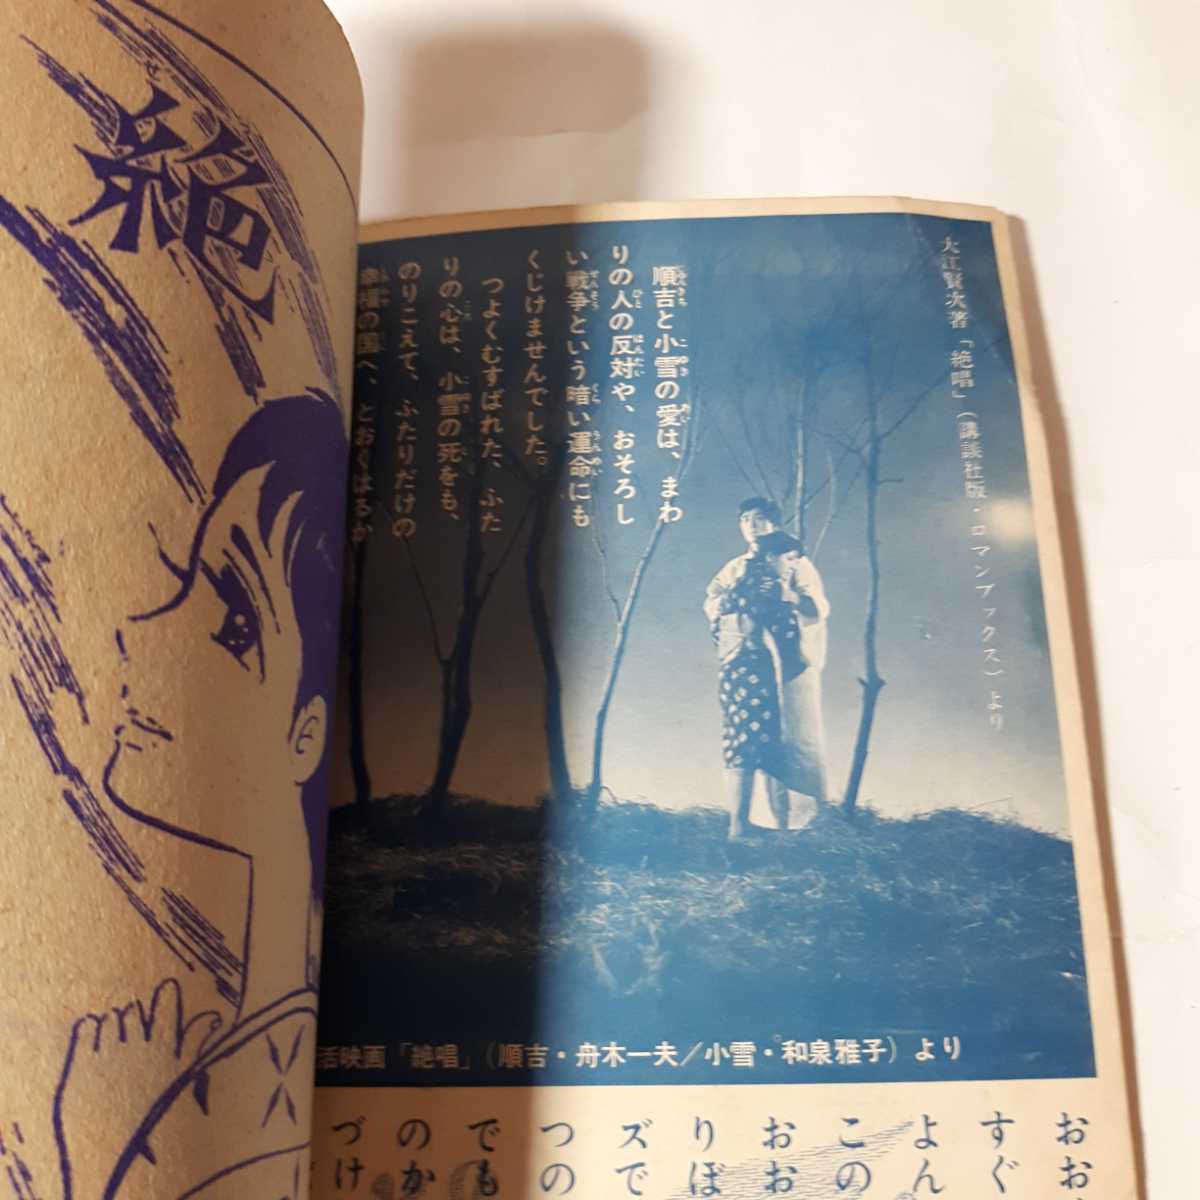 絶
大江賢次著「絶唱」(講談社版・ロマンブックス)より
順吉と小雪の愛は、まわ
りの人の反対や、おそろし
い戦争という暗い運命にも
くじけませんでした。
つよくむすばれた、ふた
りの心は、小雪の死をも、
のりこえて、ふたりだけの
幸福の国へ、とおくはるか
活映画「絶唱」(順吉・舟木一夫/小雪・和泉雅子)より
おお
すぐ
よん
この
おお
りぼ
ズで
つの
でも
のか
づけ